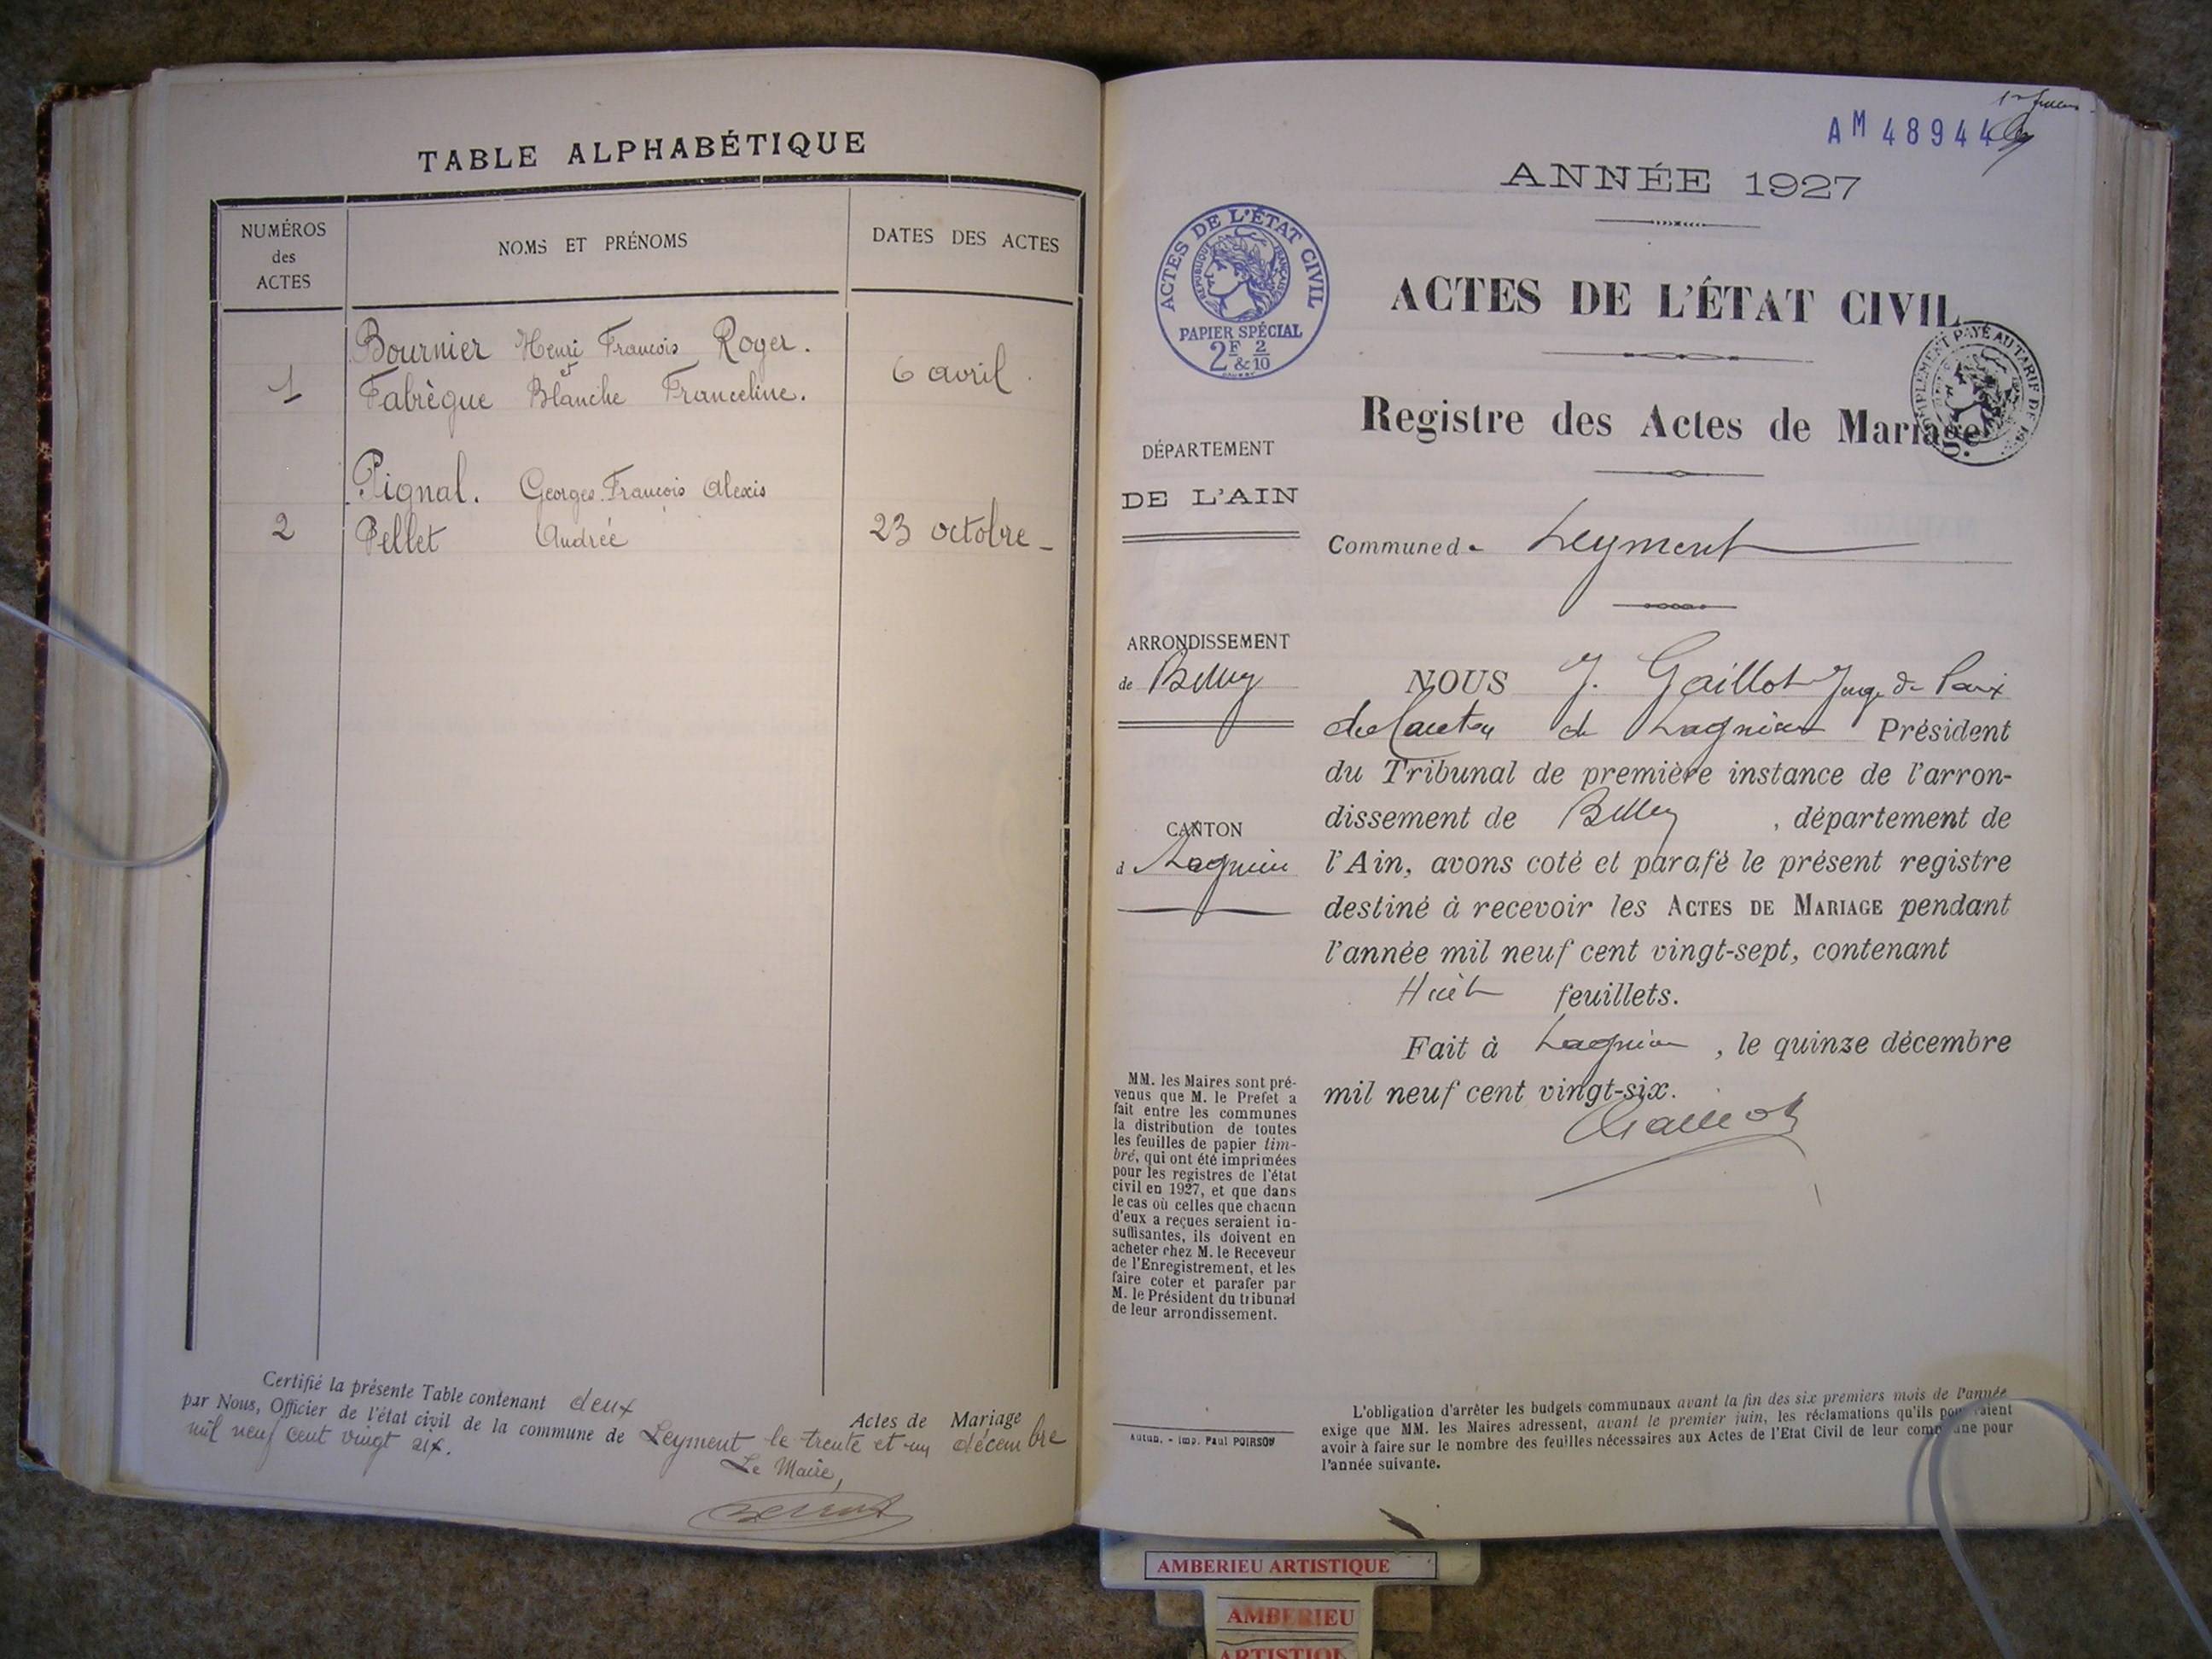 TABLE ALPHABÉTIQUE
NUMÉROS
des
ACTES
NOMS ET PRÉNOMS
DATES DES ACTES
Bournier Henri François Roger.
et
1 Fabrègue Blanche Franceline. 6 avril.
Pignal. Georges François Alexis
2 Pellet Andrée 23 octobre
Certifié la présente Table contenant deux Actes de Mariage
par Nous, Officier de l'état civil de la commune de Leyment le trente et un décembre
mil neuf cent vingt six.
Le Maire,
AM 48944
ANNÉE 1927
ACTES DE L'ÉTAT CIVIL
RÉPUBLIQUE FRANÇAISE
PAPIER SPÉCIAL
2F & 2/10
ACTES DE L'ÉTAT CIVIL
PAYÉ AU TARIF DE
Registre des Actes de Mariage
DÉPARTEMENT
DE L'AIN
Commune de Leyment
ARRONDISSEMENT
de Belley
CANTON
d Lagnieu
NOUS J. Gaillot Juge de Paix
du Canton de Lagnieu Président
du Tribunal de première instance de l'arron-
dissement de Belley, département de
l'Ain, avons coté et parafé le présent registre
destiné à recevoir les ACTES DE MARIAGE pendant
l'année mil neuf cent vingt-sept, contenant
Huit feuillets.
Fait à Lagnieu, le quinze décembre
mil neuf cent vingt-six.
Gaillot
MM. les Maires sont pré-
venus que M. le Prefet a
fait entre les communes
la distribution de toutes
les feuilles de papier tim-
bré, qui ont été imprimées
pour les registres de l'état
civil en 1927, et que dans
le cas où celles que chacun
d'eux a reçues seraient in-
suffisantes, ils doivent en
acheter chez M. le Receveur
de l'Enregistrement, et les
faire coter et parafer par
M. le Président du tribunal
de leur arrondissement.
Autun. - Imp. Paul POIRSON
L'obligation d'arrêter les budgets communaux avant la fin des six premiers mois de l'année
exige que MM. les Maires adressent, avant le premier juin, les réclamations qu'ils pourraient
avoir à faire sur le nombre des feuilles nécessaires aux Actes de l'Etat Civil de leur commune pour
l'année suivante.
AMBERIEU ARTISTIQUE
AMBERIEU
ARTISTIQ